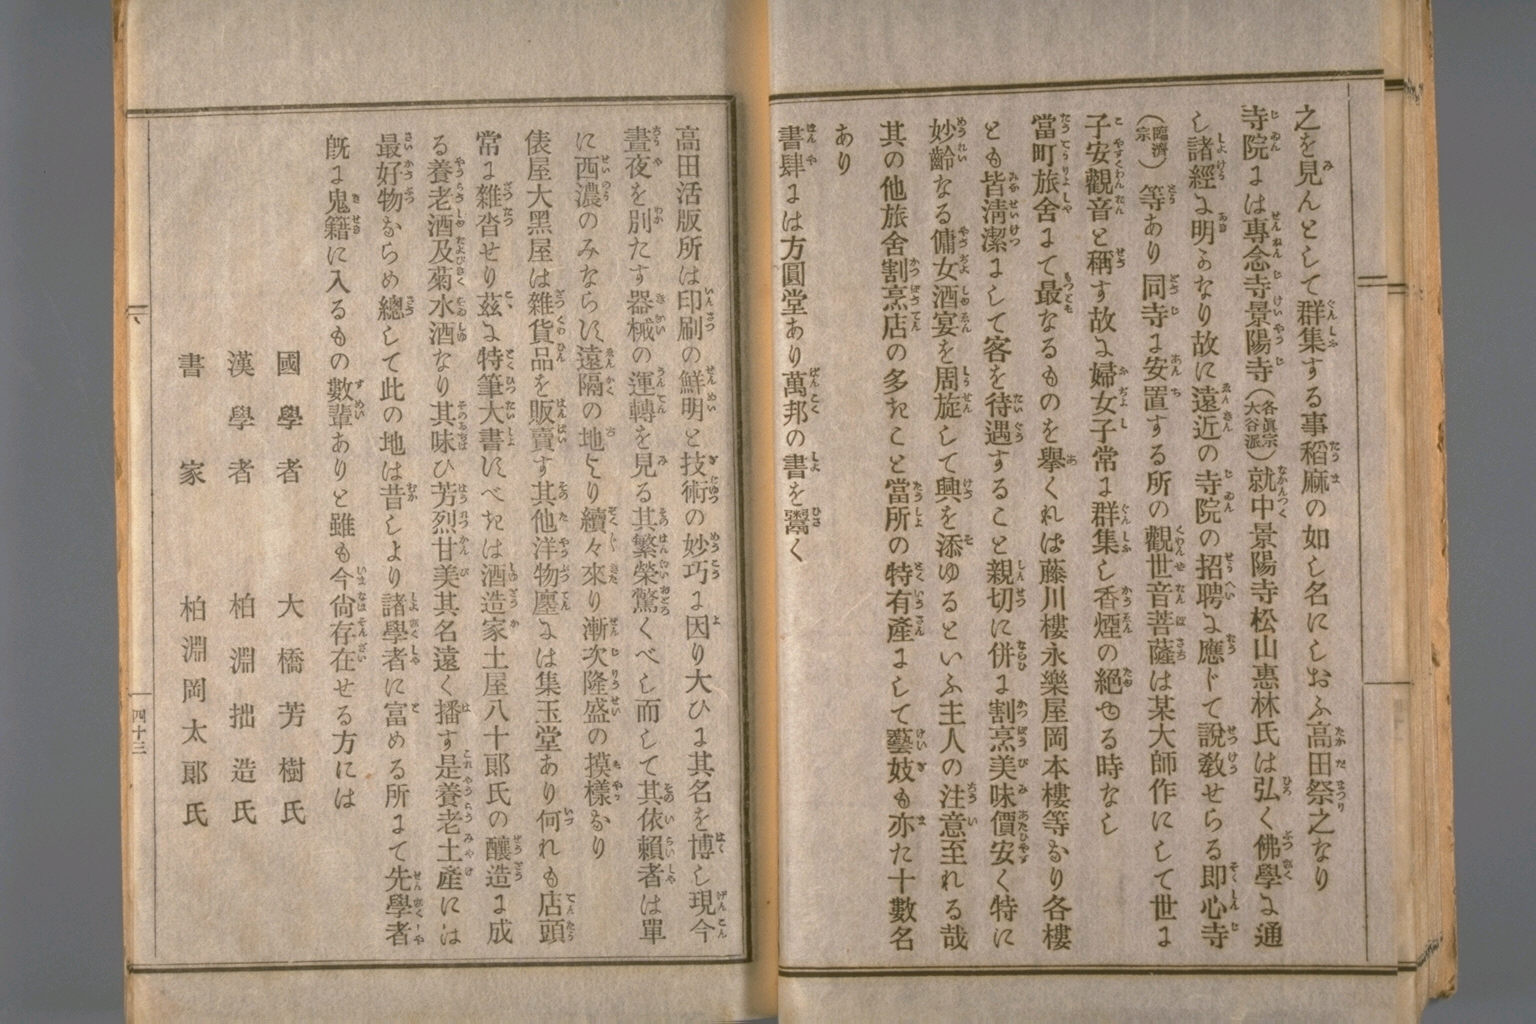 之を見んとして群集する事稻麻の如し名にしおふ高田祭之なり
寺院には專念寺景陽寺(各眞宗大谷派)就中景陽寺松山惠林氏は弘く佛學に通
し諸經に明かなり故に遠近の寺院の招聘に應じて說敎せらる即心寺
(臨濟宗)等あり同寺に安置する所の觀世音菩薩は某大師作にして世に
子安觀音と稱す故に婦女子常に群集し香煙の絕ゆる時なし
當町旅舍にて最なるものを擧くれば藤川樓永樂屋岡本樓等なり各樓
とも皆淸潔にして客を待遇すること親切に併に割烹美味價安く特に
妙齡なる傭女酒宴を周旋して興を添ゆるといふ主人の注意至れる哉
其の他旅舍割烹店の多きこと當所の特有產にして藝妓も亦た十數名
あり
書肆には方圓堂あり萬邦の書を鬻く
高田活版所は印刷の鮮明と技術の妙巧に因り大ひに其名を博し現今
晝夜を別たす器械の運轉を見る其繁榮驚くべし而して其依賴者は單
に西濃のみならず遠隔の地より續々來り漸次隆盛の摸樣なり
俵屋大黑屋は雜貨品を販賣す其他洋物廛には集玉堂あり何れも店頭
常に雜沓せり茲に特筆大書すべきは酒造家土屋八十郎氏の釀造に成
る養老酒及菊水酒なり其味ひ芳烈甘美其名遠く播す是養老土產には
最好物ならめ總して此の地は昔しより諸學者に富める所にて先學者
旣に鬼籍に入るもの數輩ありと雖も今尙存在せる方には
國學者 大橋芳樹氏
漢學者 柏淵拙造氏
書家 柏淵岡太郎氏
四十三